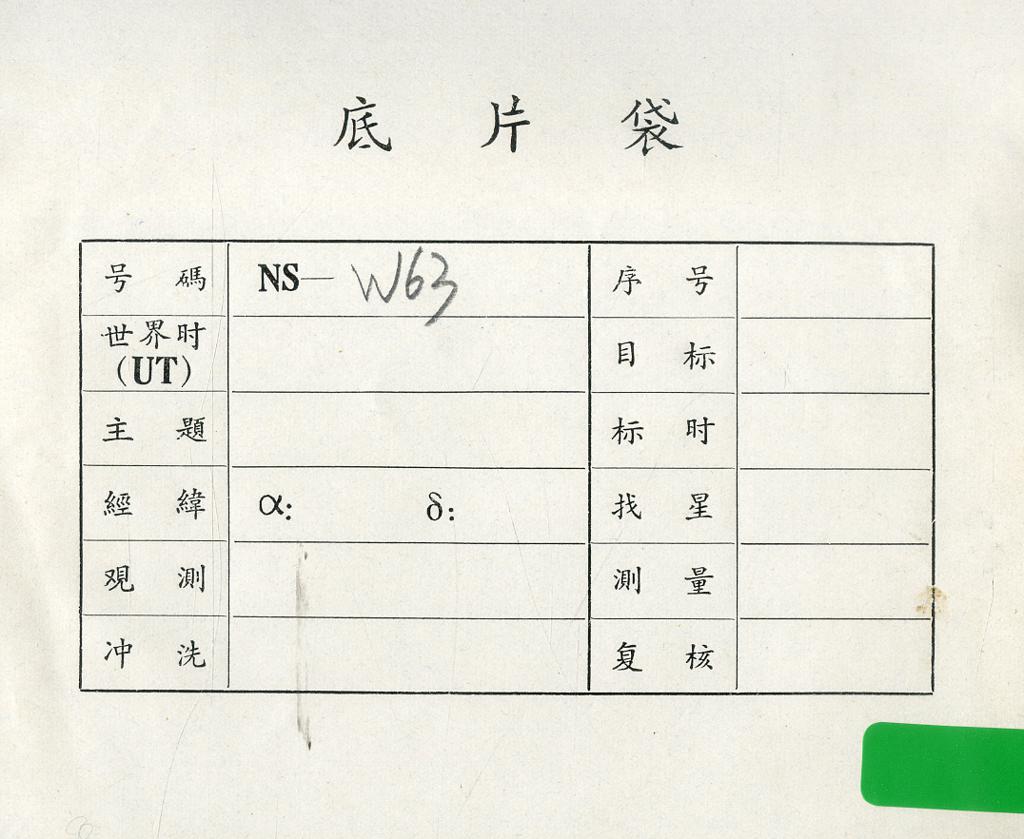 底 片 袋
号 碼 NS— W63 序 号
世界时 (UT) 目 标
主 題 标 时
經 緯 α: δ: 找 星
观 測 測 量
冲 洗 复 核